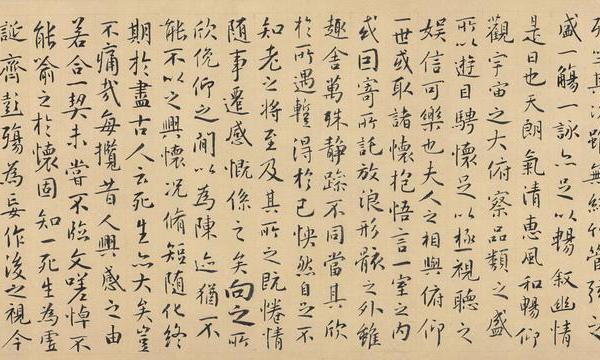 列坐其次雖無絲竹管弦之
盛一觴一詠亦足以暢敘幽情
是日也天朗氣清惠風和暢仰
觀宇宙之大俯察品類之盛
所以遊目騁懷足以極視聽之
娛信可樂也夫人之相與俯仰
一世或取諸懷抱悟言一室之內
或因寄所託放浪形骸之外雖
趣舍萬殊靜躁不同當其欣
於所遇蹔得於己怏然自足不
知老之將至及其所之既惓情
隨事遷感慨係之矣向之所
欣俛仰之間以為陳迹猶不
能不以之興懷況脩短隨化終
期於盡古人云死生亦大矣豈
不痛哉每攬昔人興感之由
若合一契未嘗不臨文嗟悼不
能喻之於懷固知一死生為虛
誕齊彭殤為妄作後之視今